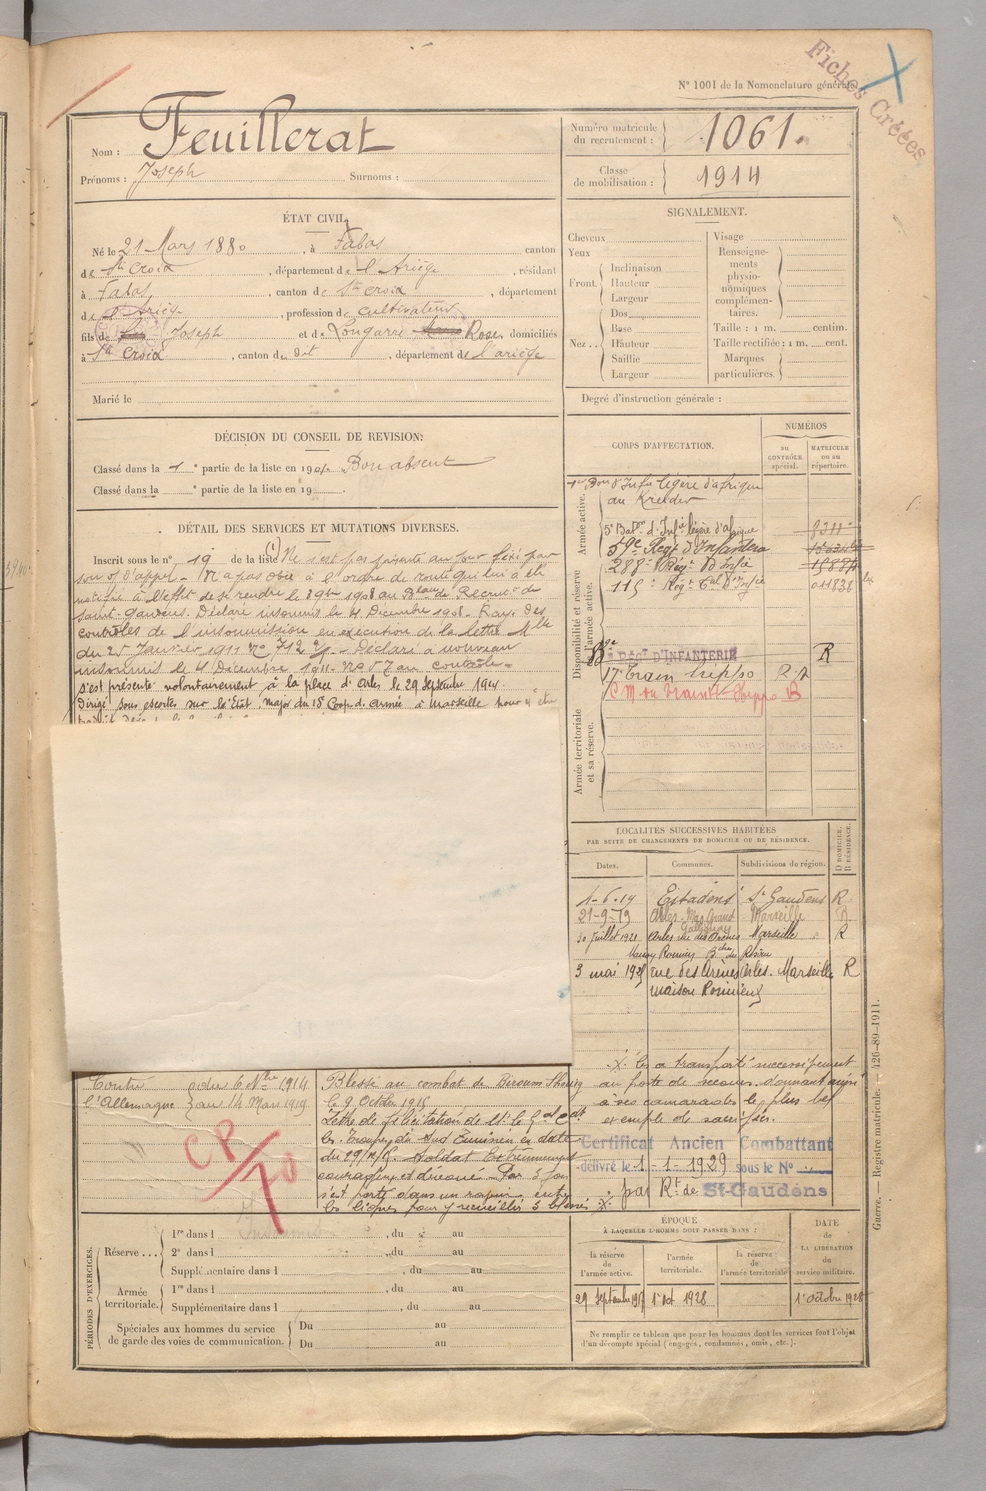 Fiches Créées
N° 1001 de la Nomenclature générale.
Nom : Feuillerat
Prénoms : Joseph Surnoms :
Numéro matricule du recrutement : 1061.
Classe de mobilisation : 1914
ÉTAT CIVIL.
Né le 21 Mars 1880, à Fabas canton
de Ste Croix, département de l'Ariège, résidant
à Fabas, canton de Ste Croix, département
de l'Ariège, profession de cultivateur
fils de Joseph et de Longarre Rose, domiciliés
à Ste Croix, canton du dit, département de l'ariège
Marié le
SIGNALEMENT.
Cheveux
Yeux
Front. Inclinaison
Hauteur
Largeur
Nez.. Dos
Base
Hauteur
Saillie
Largeur
Visage
Renseignements physionomiques complémentaires.
Taille : 1 m. centim.
Taille rectifiée : 1 m. cent.
Marques particulières.
Degré d'instruction générale :
DÉCISION DU CONSEIL DE REVISION:
Classé dans la 1e partie de la liste en 190 Bon absent
Classé dans la e partie de la liste en 19 .
CORPS D'AFFECTATION.
NUMÉROS
DU CONTRÔLE spécial.
MATRICULE OU AU répertoire.
Armée active.
1er Bon d'Infie légère d'afrique
au Kreider
5e Baton d'Infie légère d'afrique 8311
Disponibilité et réserve de l'armée active.
59e Régt d'Infanterie
288e Régt d'Infie
115e Régt Cal d'Infie 011838
RÉGt D'INFANTERIE R
17e Train hippo R.A
C M du train Hippo B
Armée territoriale et sa réserve.
DÉTAIL DES SERVICES ET MUTATIONS DIVERSES.
Inscrit sous le n° 19 de la liste (1) Ne s'est pas présenté au jour fixé par
son of d'appel - N'a pas obéi à l'ordre de route qui lui a été
notifié à l'effet de se rendre le 29bre 1908 au Bau de Recrut de
Saint-Gaudens. Déclaré insoumis le 4 Décembre 1908. Rayé des
contrôles de l'insoumission en exécution de la lettre Mlle
du 25 Janvier 1911 No 712 - Déclaré à nouveau
insoumis le 4 Décembre 1911 - No 57 au contrôle -
s'est présenté volontairement à la place d'Arles le 29 Septembre 1914
Dirigé sous escorte sur l'État-major du 15e Corps d'armée à Marseille pour y être
LOCALITÉS SUCCESSIVES HABITÉES
PAR SUITE DE CHANGEMENTS DE DOMICILE OU DE RÉSIDENCE.
D DOMICILE. R RÉSIDENCE.
Dates. Communes. Subdivisions de région.
1-6-19 Estadens St Gaudens R
21-9-19 Arles - Mas Grand Marseille R
30 Juillet 1921 Arles rue des Arènes Marseille R
3 mai 1925 rue des Arènes Arles. Marseille R
maison Romieux
Contre du 6 Nbre 1914
l'Allemagne au 14 Mars 1919
CP/70
Blessé au combat de Diroum Shourg
le 9 Octobre 1915
Lettre de félicitation de Mr le Gal Cdt
les Troupes du Sud Tunisien en date
du 29/12/15. Soldat Extrêmement
courageux et dévoué. Par 3 fois
s'est porté dans un ravin entre
les lignes pour y recueillir 3 blessés X.
X. les a transporté successivement
au poste de secours. donnant ainsi
à ses camarades le plus bel
exemple de sacrifice.
Certificat Ancien Combattant
délivré le 1-1-1929 sous le N°
par Rt de St-Gaudens
PÉRIODES D'EXERCICES.
Réserve... 1re dans l , du au
Insoumis
2e dans l , du au
Supplémentaire dans l , du au
Armée territoriale. 1re dans l , du au
Supplémentaire dans l , du au
Spéciales aux hommes du service de garde des voies de communication. Du au
Du au
ÉPOQUE
À LAQUELLE L'HOMME DOIT PASSER DANS :
la réserve de l'armée active. l'armée territoriale. la réserve de l'armée territoriale.
DATE de LA LIBÉRATION du service militaire.
29 Septembre 1917 1er Oct 1928 1er Octobre 1928
Ne remplir ce tableau que pour les hommes dont les services font l'objet
d'un décompte spécial (engagés, condamnés, omis, etc.).
Guerre. — Registre matricule. — 426-89-1911.